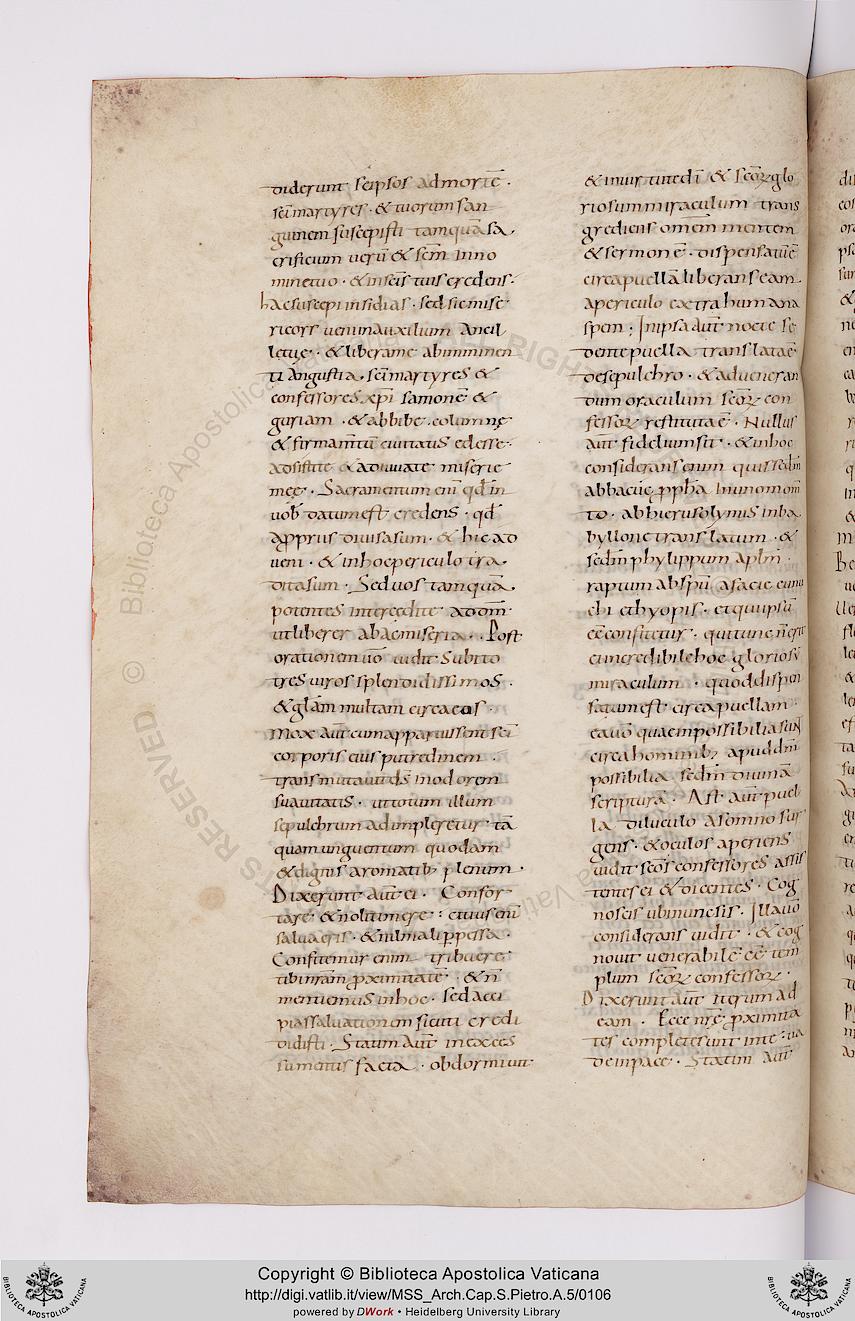 diderunt seipsos admorte̅ ·
sc̅i martyres · & tuorum san
guinem suscepisti tamqua̅ sa ·
crificium ueru̅ & sc̅m Inno
mine tuo · & insc̅is tuis credens ·
haec suscepi insidias · sed sic mise
ricors ueni in auxilium Ancil
lę tuę · & libera me ab imminen
ti Angustia · sc̅i martyres &
confessores xp̅i samone &
guriam · & abbibe · columnę
& firmam̅tu̅ ciuitatis edesse ·
adsistite & adiuuate miserię
meę · Sacramentum eni̅ qd̅ in
uob̅ datum est credens · qd̅
a propriis diuisa sum · & hic ad
ueni · & in hoc periculo tra ·
dita sum · Sed uos tamqua̅ ·
potentes intercedite · ad dm̅ ·
ut liberer ab hac miseria · · Post
orationem uō uidit Subito
tres uiros splendidissimos ·
& glam̅ multam circa eos ·
Mox aut̅ cum apparuissent sc̅i
corporis eius putredinem ·
transmutauit ds̅ in odorem
suauitatis · ut totum illum
sepulchrum adimpleretur · ta̅
quam unguentum quodam
& dignis aromatib; plenum ·
Dixerunt aut̅ ei · Confor
tare · & noli timere : etuus eni̅
salua eris · & nil mali p̱pessa ·
Confitemur enim tribuere
tibi nr̅am proximitate̅ · & n̅
mentiemus in hoc · sed acci
pias saluationem sicuti credi
didisti · Statim aut̅ in exces
su mentis facta · obdormiuit
& in uirtute di̅ & sc̅orꝝ glo
riosum miraculum trans
grediens omn̅em mentem
& sermone̅ · dispensatu̅ e̅
circa puella̅ liberans eam ·
a periculo extra humana
spem : In ipsa aut̅ nocte se
dente puella translata e̅
de sepulchro · & ad ueneran
dum oraculum sc̅orꝝ con
fessorꝝ restituta e̅ · Nullus
aut̅ fidelium sit · & in hoc
considerans enim quis sedm̅
abbacuc proph̅a in uno mom̅
to · ab hierusolymis in ba
byllone translatum · &
sedm̅ phylippum aplm̅
raptum ab spu̅ a facie eunu
chi ethyopis · et qui ipsu̅
ee̅ confitetur · qui tunc n̅ erit
ei incredibile hoc gloriosu̅
miraculum · quod dispen
satum est circa puellam ·
ea uō quae inpossibilia sunt
circa hominib; apud dm̅
possibilia sedm̅ diuina̅
scriptura̅ · Ast aut̅ puel
la diluculo a somno sur
gens · & oculos aperiens
uidit sc̅os confessores assis
tentes ei & dicentes · Cog
noscis ubi nunc sis · Illa uō
considerans uidit · & cog
nouit uenerabile ee̅ tem
plum sc̅orꝝ confessorꝝ ·
Dixerunt aut̅ iterum ad
eam · Ecce nr̅ę proximita
tes completę sunt in te : ua
de in pace · Statim aut̅
Copyright © Biblioteca Apostolica Vaticana
http://digi.vatlib.it/view/MSS_Arch.Cap.S.Pietro.A.5/0106
powered by DWork • Heidelberg University Library